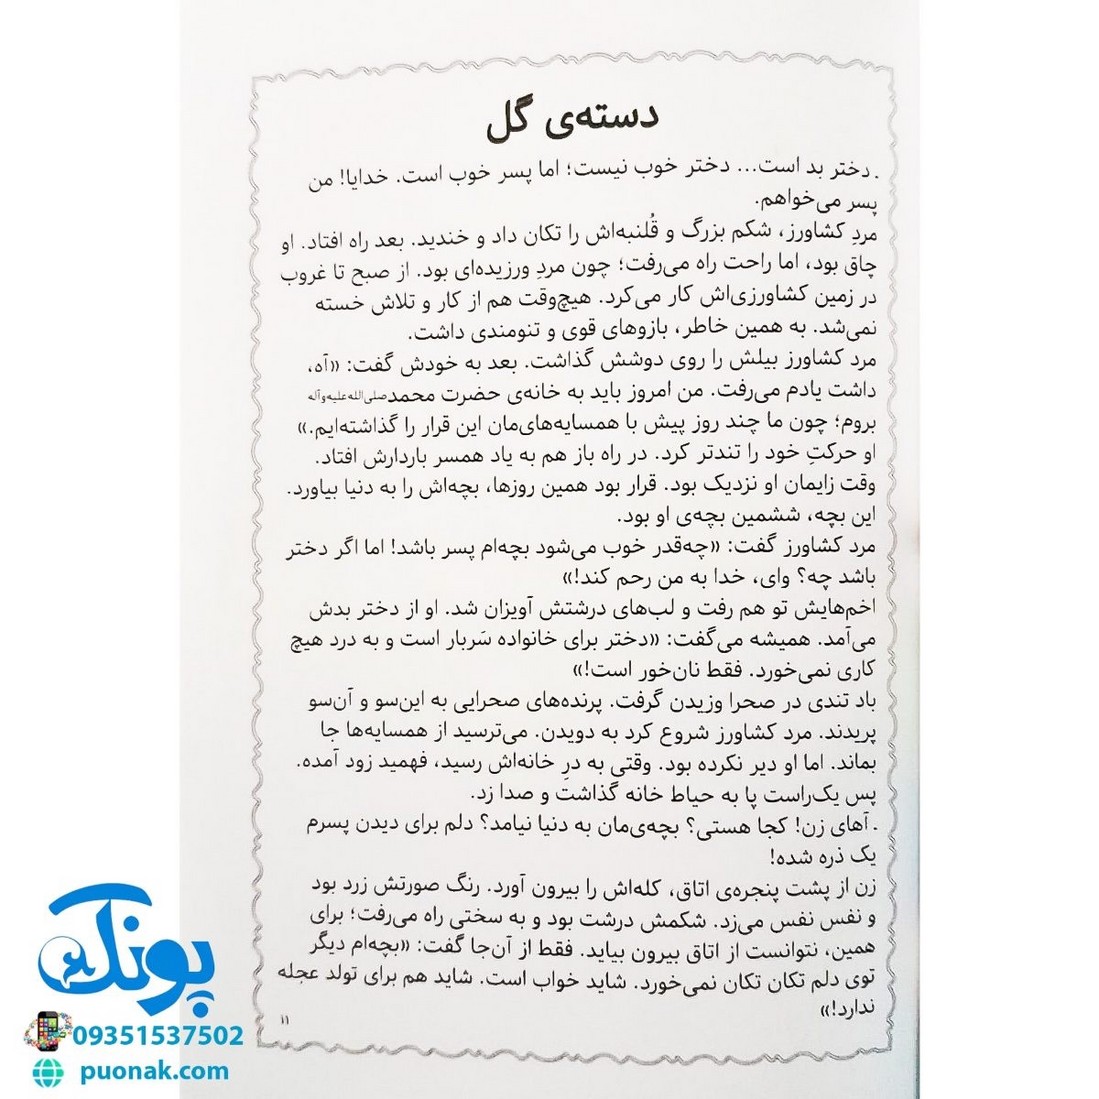 دسته‌ی گل
. دختر بد است... دختر خوب نیست؛ اما پسر خوب است. خدایا! من
پسر می‌خواهم.
مردِ کشاورز، شکم بزرگ و قُلنبه‌اش را تکان داد و خندید. بعد راه افتاد. او
چاق بود، اما راحت راه می‌رفت؛ چون مردِ ورزیده‌ای بود. از صبح تا غروب
در زمین کشاورزی‌اش کار می‌کرد. هیچ‌وقت هم از کار و تلاش خسته
نمی‌شد. به همین خاطر، بازوهای قوی و تنومندی داشت.
مرد کشاورز بیلش را روی دوشش گذاشت. بعد به خودش گفت: «آه،
داشت یادم می‌رفت. من امروز باید به خانه‌ی حضرت محمد صلی‌الله‌علیه‌وآله
بروم؛ چون ما چند روز پیش با همسایه‌های‌مان این قرار را گذاشته‌ایم.»
او حرکتِ خود را تندتر کرد. در راه باز هم به یاد همسر باردارش افتاد.
وقت زایمان او نزدیک بود. قرار بود همین روزها، بچه‌اش را به دنیا بیاورد.
این بچه، ششمین بچه‌ی او بود.
مرد کشاورز گفت: «چه‌قدر خوب می‌شود بچه‌ام پسر باشد! اما اگر دختر
باشد چه؟ وای، خدا به من رحم کند!»
اخم‌هایش تو هم رفت و لب‌های درشتش آویزان شد. او از دختر بدش
می‌آمد. همیشه می‌گفت: «دختر برای خانواده سَربار است و به درد هیچ
کاری نمی‌خورد. فقط نان‌خور است!»
باد تندی در صحرا وزیدن گرفت. پرنده‌های صحرایی به این‌سو و آن‌سو
پریدند. مرد کشاورز شروع کرد به دویدن. می‌ترسید از همسایه‌ها جا
بماند. اما او دیر نکرده بود. وقتی به درِ خانه‌اش رسید، فهمید زود آمده.
پس یک‌راست پا به حیاط خانه گذاشت و صدا زد.
. آهای زن! کجا هستی؟ بچه‌ی‌مان به دنیا نیامد؟ دلم برای دیدن پسرم
یک ذره شده!
زن از پشت پنجره‌ی اتاق، کله‌اش را بیرون آورد. رنگ صورتش زرد بود
و نفس نفس می‌زد. شکمش درشت بود و به سختی راه می‌رفت؛ برای
همین، نتوانست از اتاق بیرون بیاید. فقط از آن‌جا گفت: «بچه‌ام دیگر
توی دلم تکان تکان نمی‌خورد. شاید خواب است. شاید هم برای تولد عجله
ندارد!»
۱۱
پونک
09351537502
puonak.com